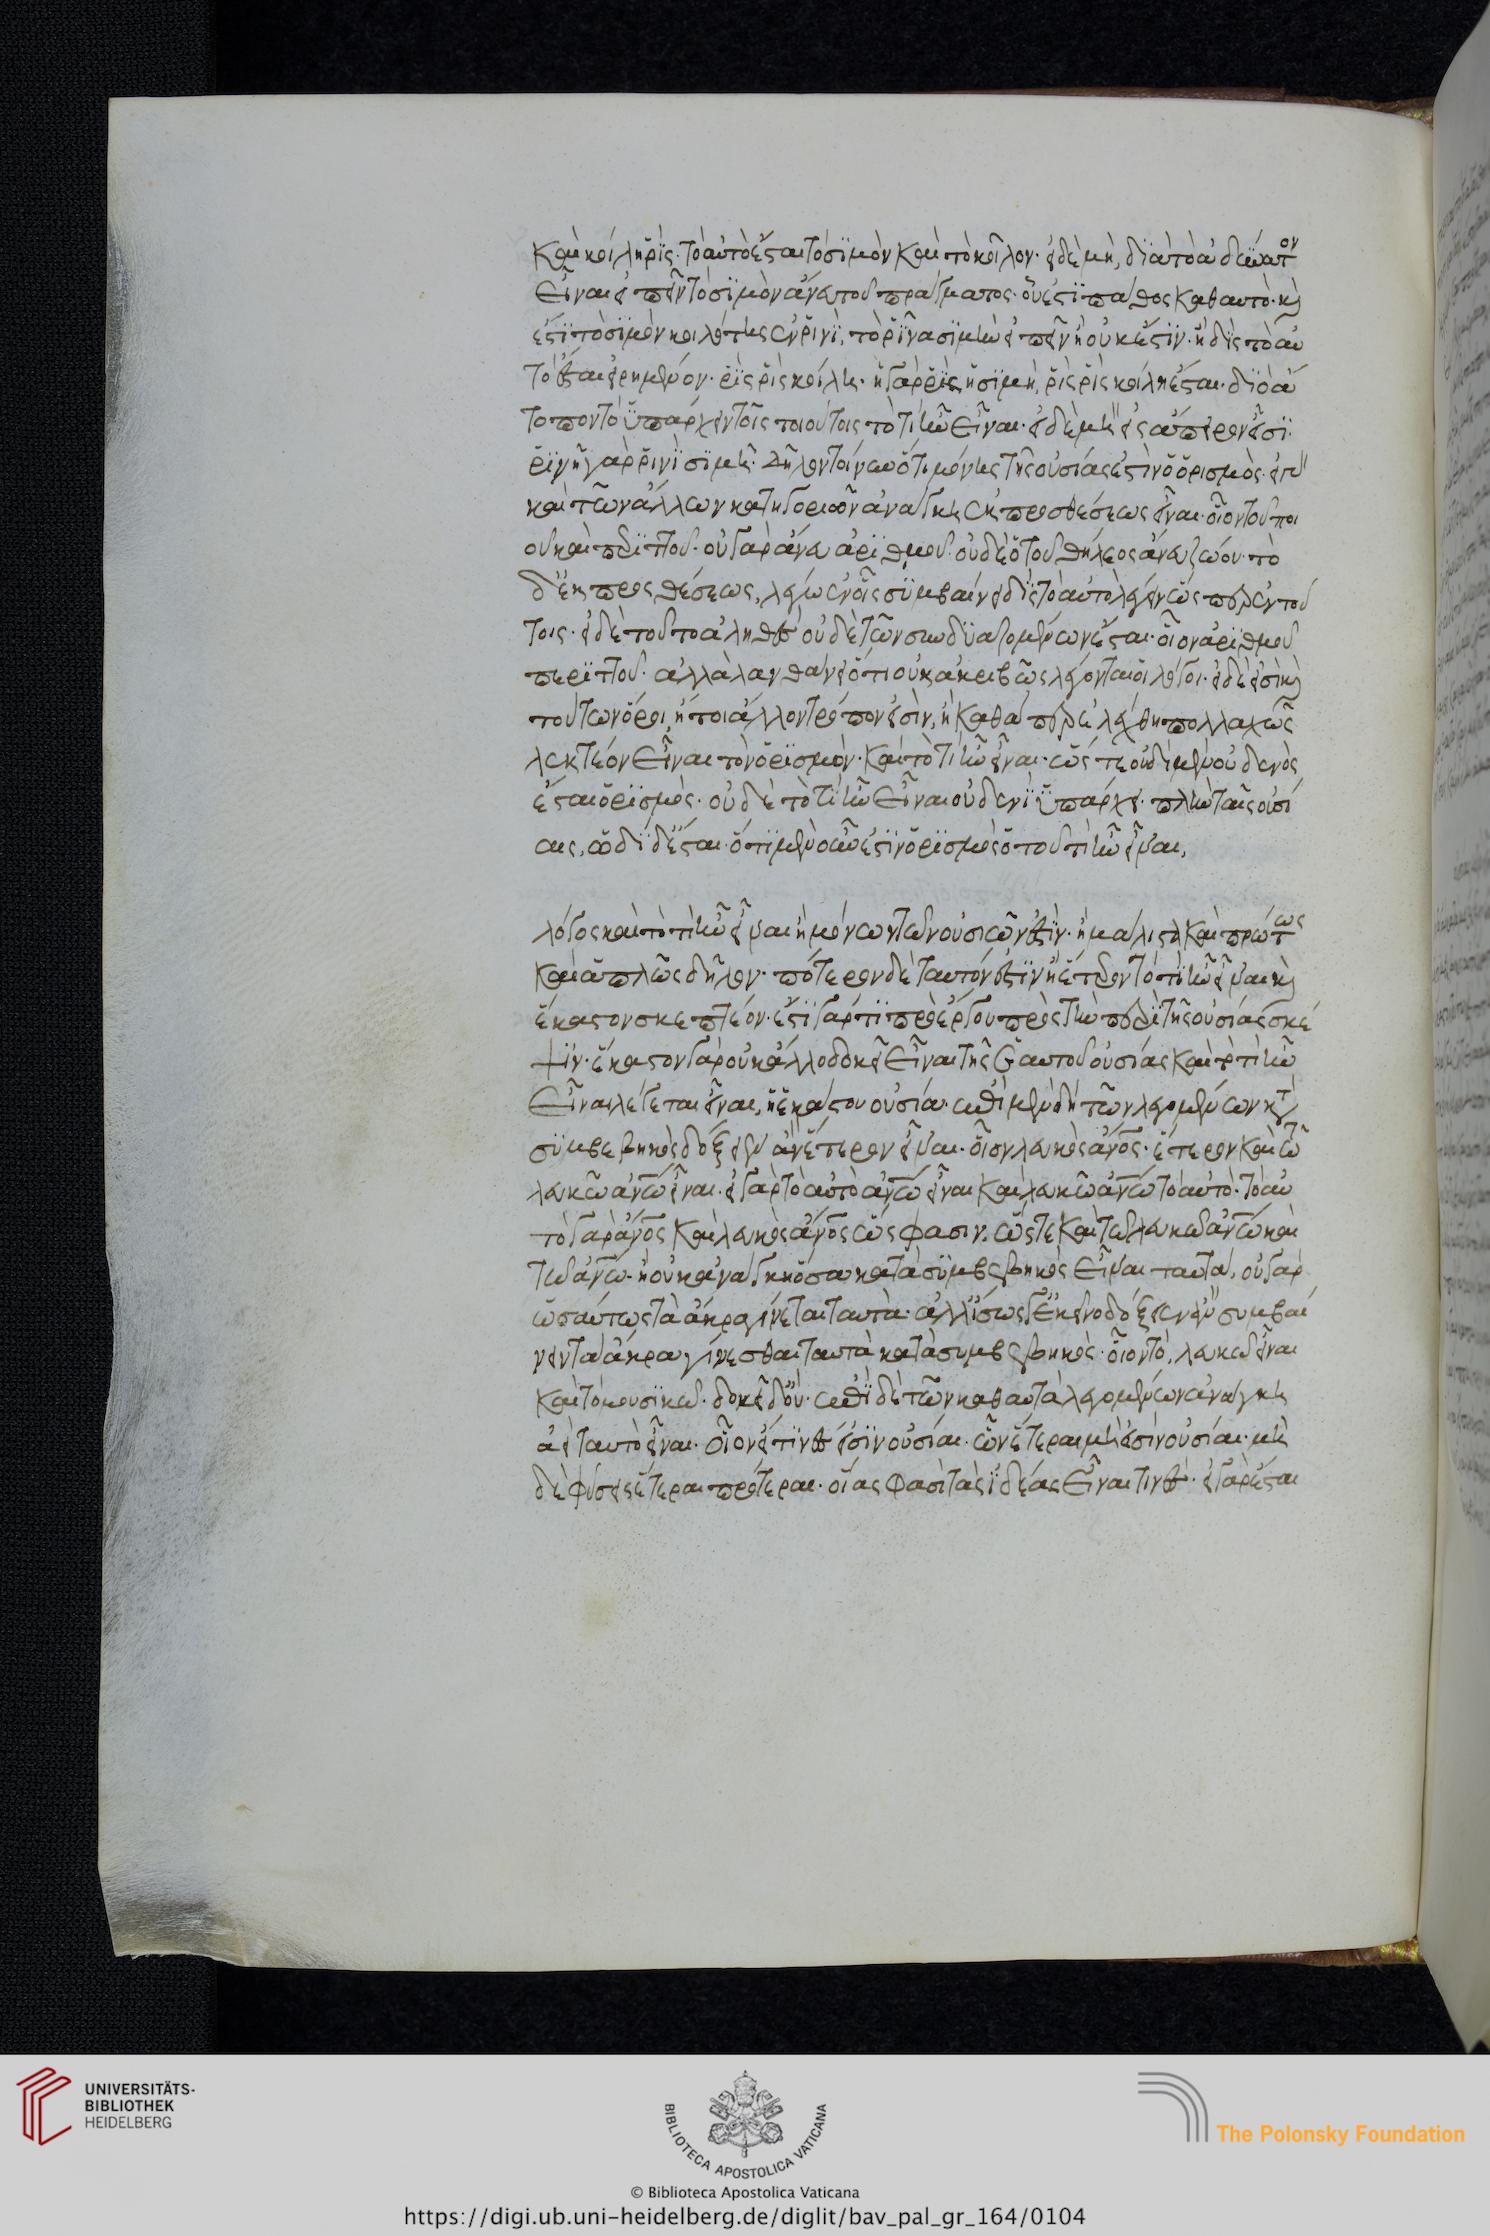 Καὶ κοίλη ῥὶς. τὸ αὐτὸ ἔσται τὸ σϊμὸν καὶ τὸ κοῖλον· εἰ δὲ μὴ, διὰ τὸ ἀδύνατον
εἶναι εἰπεῖν τὸ σϊμὸν ἄνευ τοῦ πράγματος· οὗ ἐστὶ πάθος καθαυτὸ· καὶ
ἐστὶ τὸ σϊμὸν κοιλότης ἐν ῥινὶ, τὸ ῥῖνα σϊμὴν εἰπεῖν ἢ οὐκ ἔστϊν· ἢ δὶς τὸ αὐ
τὸ ἔσται εἰρημένον· ῥὶς ῥὶς κοίλη. ἡ γὰρ ῥὶς ἡ σϊμὴ, ῥὶς ῥὶς κοίλη ἔσται. διὸ ἄ
τοπον τὸ ὑπάρχειν τοῖς τοιούτοις τὸ τί ἦν εἶναι· εἰ δὲ μὴ εἰς ἄπειρον εἶσϊ.
ῥϊνὶ γὰρ ῥινῒ σϊμῆ. Δῆλον τοίνυν ὅτι μόνης τῆς οὐσίας ἐστὶν ὁ ὁρισμὸς. εἰ γὰρ
καὶ τῶν ἄλλων κατηγοριῶν ἀνάγκη ἐκ προσθέσεως εἶναι. οἷον τοῦ ποι
οῦ καὶ περϊττοῦ. οὐ γὰρ ἄνευ ἀρϊθμοῦ. οὐδὲ ὁ τοῦ θήλεος ἄνευ ζώου· τὸ
δὲ ἐκ προσθέσεως, λέγω ἐν οἷς συμβαίνει δὶς τὸ αὐτὸ λέγειν ὥσπερ ἐν τού
τοις. εἰ δὲ τοῦτο ἀληθὲς οὐδὲ τῶν συνδϋαζομένων ἔσται. οἷον ἀρϊθμοῦ
περϊττοῦ. ἀλλὰ λανθάνει ὅτι οὐκ ἀκριβῶς λέγονται οἱ λόγοι. εἰ δέ εἰσὶ καὶ
τούτων ὅροι, ἤτοι ἄλλον τρόπον εἰσὶν, ἢ καθάπερ ἐλέχθη πολλαχῶς
λεκτέον εἶναι τὸν ὁρϊσμὸν. καὶ τὸ τί ἦν εἶναι. ὥστε ὡδὶ μὲν οὐδενὸς
ἔσται ὁρϊσμὸς. οὐδὲ τὸ τί ἦν εἶναι οὐδενῒ ὑπάρχει. πλὴν ταῖς οὐσί
αις, ὡδῒ δ' ἔσται. ὅτϊ μὲν οὖν ἐστϊν ὁρϊσμὸς ὁ τοῦ τί ἦν εἶναι,
λόγος καὶ τὸ τί ἦν εἶναι ἢ μόνων τῶν οὐσιῶν ἐστϊν. ἢ μάλιστα καὶ πρώτως
καὶ ἁπλῶς δῆλον. πότερον δὲ ταυτόν ἐστϊν ἢ ἕτερον τὸ τί ἦν εἶναι καὶ
ἕκαστον σκεπτέον. ἔστϊ γάρ τϊ πρὸ ἔργου πρὸς τὴν περὶ τῆς οὐσίας σκέ
ψϊν. ἕκαστον γὰρ οὐκ ἄλλο δοκεῖ εἶναι τῆς ἑαυτοῦ οὐσίας καὶ τὸ τί ἦν
εἶναι λέγεται εἶναι, ἡ ἑκάστου οὐσία. ἐπὶ μὲν δὴ τῶν λεγομένων κατὰ
συμβεβηκὸς δόξειεν ἂν ἕτερον εἶναι. οἷον λευκὸς ἄνος. ἕτερον καὶ τῶ
λευκῶ ἀνω εἶναι. εἰ γὰρ τὸ αὐτὸ ἀνω εἶναι καὶ λευκῶ ἀνω τὸ αὐτὸ. τὸ αὐ
τὸ γὰρ ἄνος καὶ λευκὸς ἄνος ὥς φασιν. ὥστε καὶ τῶ λευκῶ ἀνω καὶ
τῶ ἀνω. ἢ οὐκ ἀνάγκη ὅσα κατὰ συμβεβηκὸς εἶναι ταυτά, οὐ γὰρ
ὡσαύτως τὰ ἄκρα γίνεται ταυτὰ. ἀλλ' ἴσως γε ἐκεῖνο δόξειεν ἂν συμβαί
νειν τὰ ἄκρα γίνεσθαι ταυτὰ κατὰ συμβεβηκὸς. οἷον τὸ, λευκῶ εἶναι
καὶ τὸ μουσϊκῶ. δοκεῖ δ' οὔ. ἐπὶ δὲ τῶν καθαυτὰ λεγομένων ἀνάγκη
ἀεὶ ταυτὸ εἶναι. οἷον εἴ τϊνές εἰσϊν οὐσίαι. ὧν ἕτεραι μὴ εἰσὶν οὐσίαι. μη
δὲ φύσεις ἕτεραι πρότεραι. οἵας φασὶ τὰς ἰδέας εἶναι τινές. εἰ γὰρ ἔσται
UNIVERSITÄTS-
BIBLIOTHEK
HEIDELBERG
BIBLIOTECA APOSTOLICA VATICANA
© Biblioteca Apostolica Vaticana
The Polonsky Foundation
https://digi.ub.uni-heidelberg.de/diglit/bav_pal_gr_164/0104